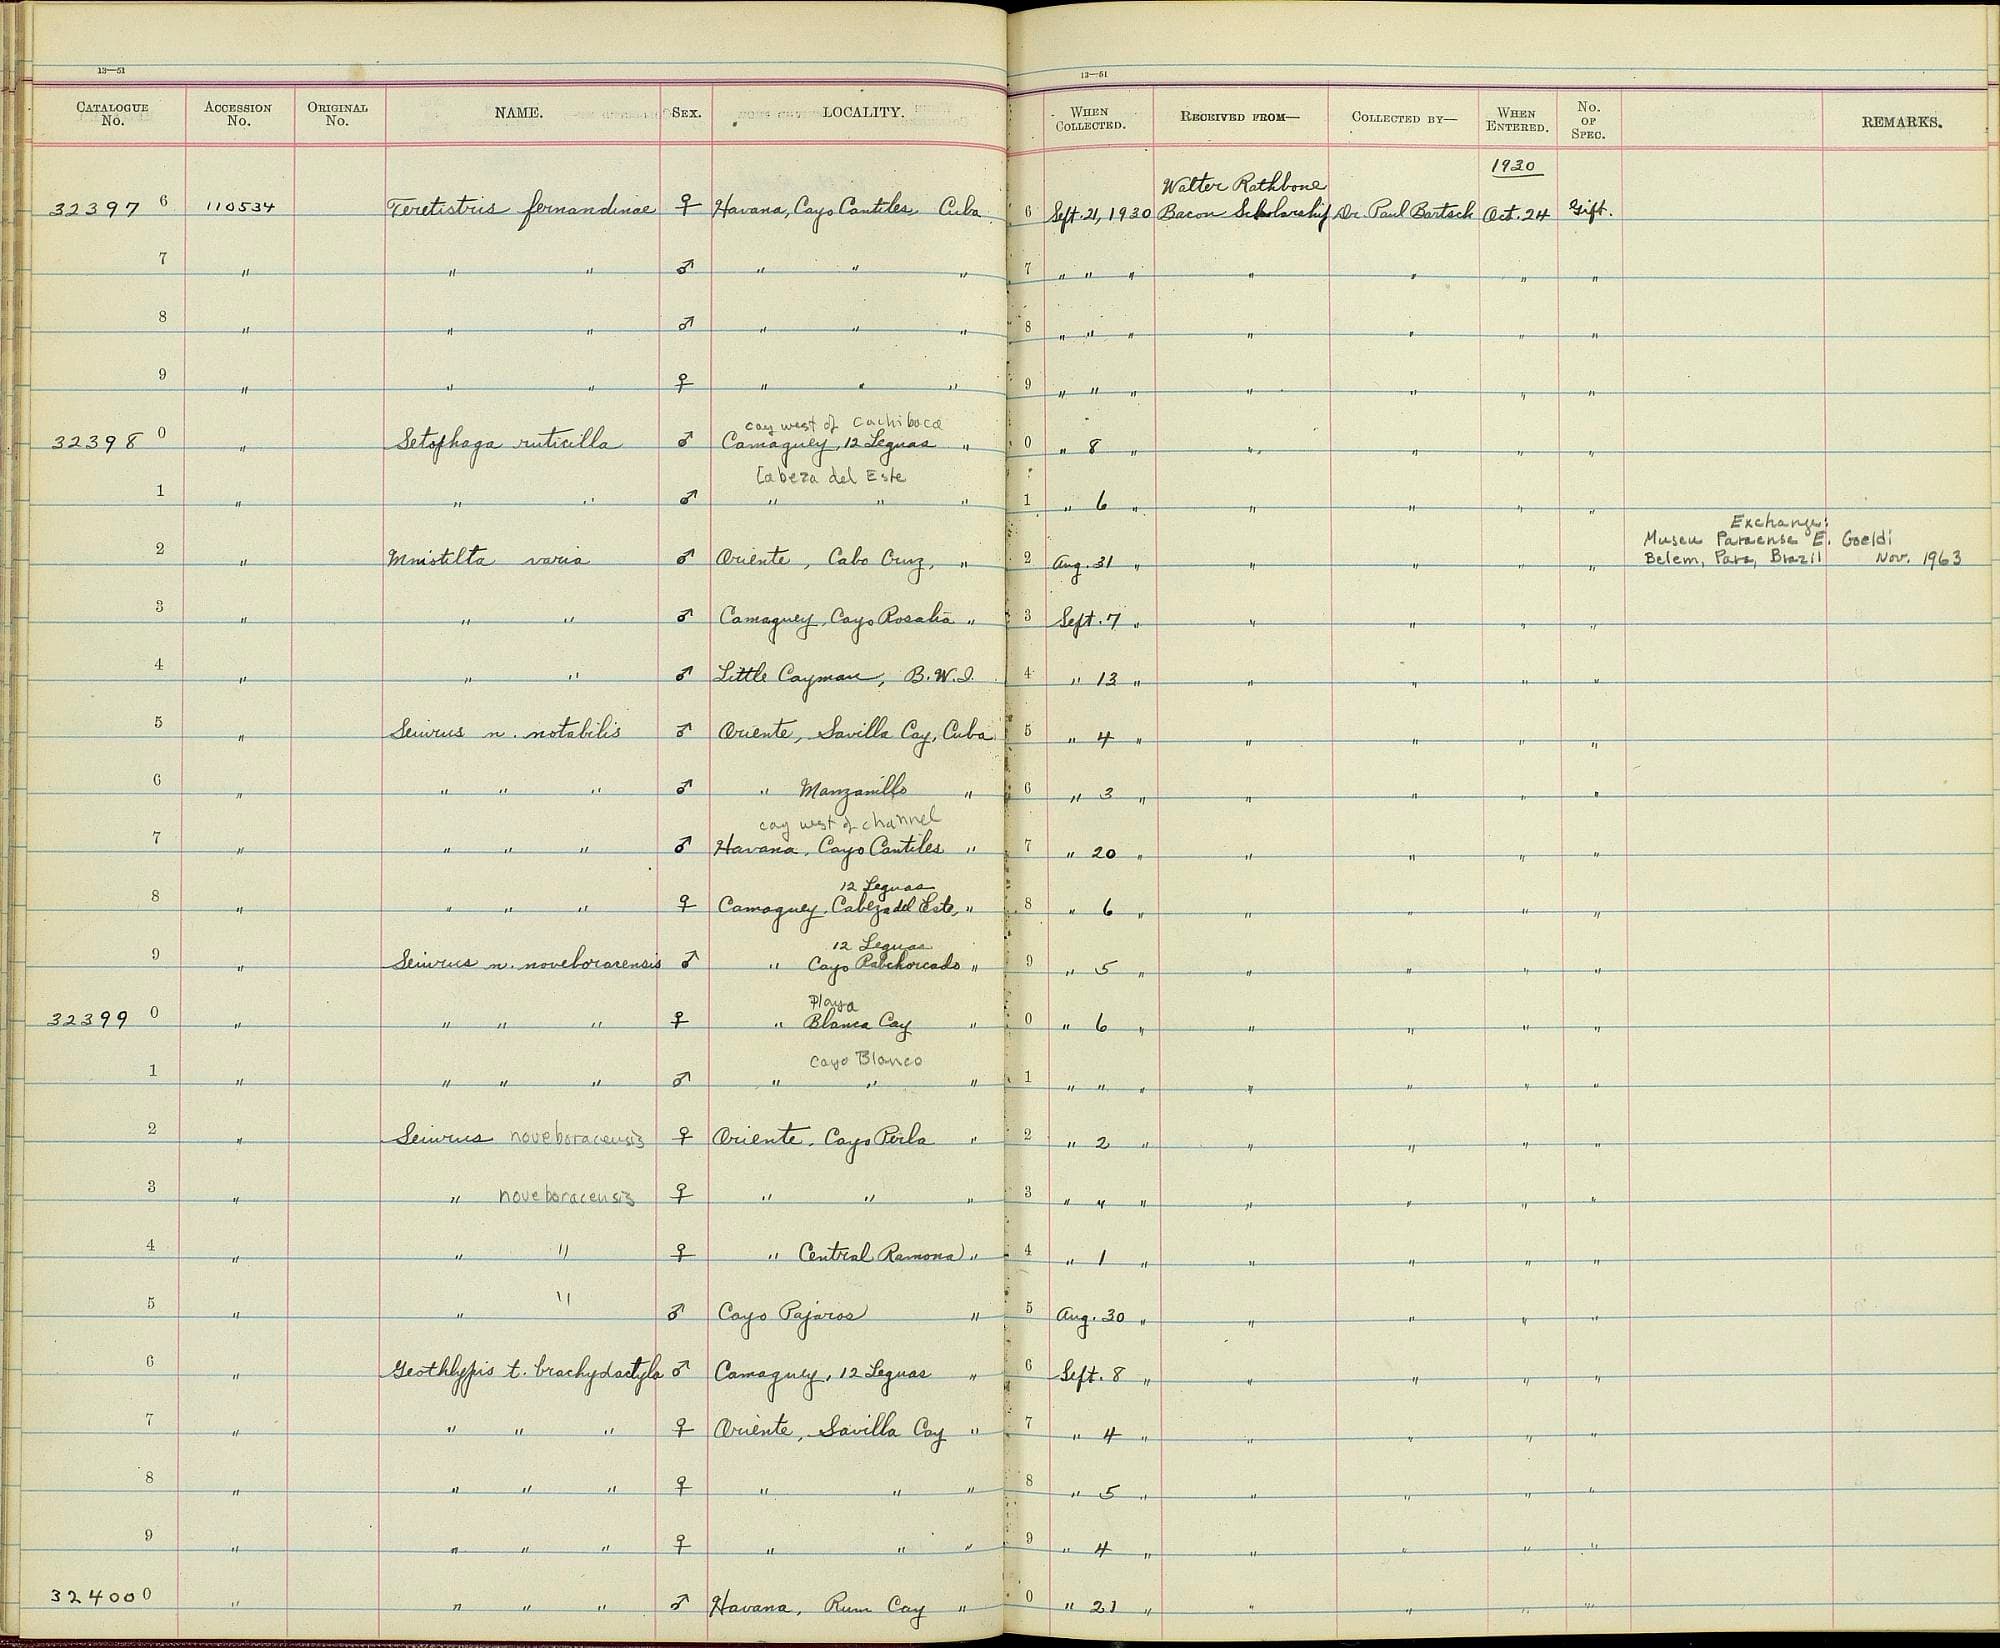 13—51
13—51
CATALOGUE No. ACCESSION No. ORIGINAL No. NAME. SEX. LOCALITY. WHEN COLLECTED. RECEIVED FROM— COLLECTED BY— WHEN ENTERED. No. OF SPEC. REMARKS.
1930
Walter Rathbone
32397 6 110534 Teretistris fernandinae ♀ Havana, Cayo Cantiles, Cuba 6 Sept. 21, 1930 Bacon Scholarship Dr. Paul Bartsch Oct. 24 Gift.
7 " " " ♂ " " " 7 " " " " " " "
8 " " " ♂ " " " 8 " " " " " " "
9 " " " ♀ " " " 9 " " " " " " "
cay west of Cachiboca
32398 0 " Setophaga ruticilla ♂ Camaguey, 12 Leguas " 0 " 8 " " " " "
Cabeza del Este
1 " " " ♂ " " " 1 " 6 " " " " "
Exchange:
Museu Paraense E. Goeldi
2 " Mniotilta varia ♂ Oriente, Cabo Cruz, " 2 Aug. 31 " " " " " Belem, Para, Brazil Nov. 1963
3 " " " ♂ Camaguey, Cayo Rosalia " 3 Sept. 7 " " " " "
4 " " " ♂ Little Cayman, B.W.I. 4 " 13 " " " " "
5 " Seiurus n. notabilis ♂ Oriente, Savilla Cay, Cuba 5 " 4 " " " " "
6 " " " " ♂ " Manzanillo " 6 " 3 " " " " "
cay west of channel
7 " " " " ♂ Havana, Cayo Cantiles " 7 " 20 " " " " "
12 Leguas
8 " " " " ♀ Camaguey, Cabeza del Este, " 8 " 6 " " " " "
12 Leguas
9 " Seiurus n. noveboracensis ♂ " Cayo Rabihorcado " 9 " 5 " " " " "
Playa
32399 0 " " " " ♀ " Blanca Cay " 0 " 6 " " " " "
Cayo Blanco
1 " " " " ♂ " " " 1 " " " " " " "
2 " Seiurus noveboracensis ♀ Oriente, Cayo Perla " 2 " 2 " " " " "
3 " " noveboracensis ♀ " " " 3 " " " " " " "
4 " " " ♀ " Central Ramona) " 4 " 1 " " " " "
5 " " " ♂ Cayo Pajaros " 5 Aug. 30 " " " " "
6 " Geothlypis t. brachydactyla ♂ Camaguey, 12 Leguas " 6 Sept. 8 " " " " "
7 " " " " ♀ Oriente, Savilla Cay " 7 " 4 " " " " "
8 " " " " ♀ " " " 8 " 5 " " " " "
9 " " " " ♀ " " " 9 " 4 " " " " "
32400 0 " " " " ♂ Havana, Rum Cay " 0 " 21 " " " " "